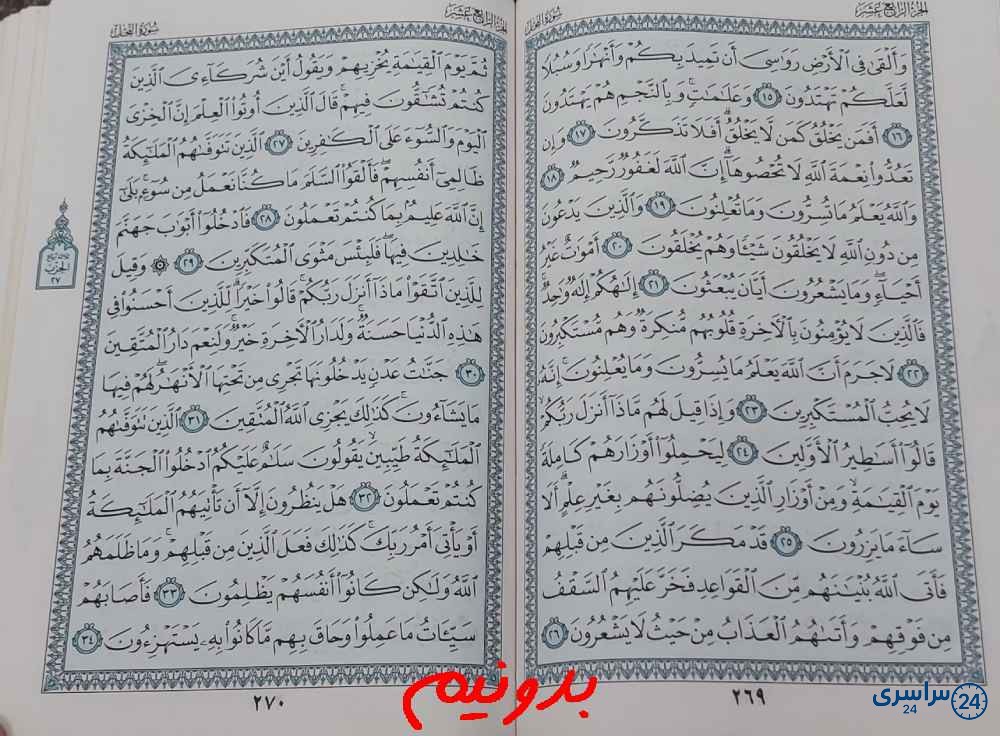 الجزء الرابع عشر
سورة النحل
وَأَلْقَىٰ فِي ٱلْأَرْضِ رَوَٰسِيَ أَن تَمِيدَ بِكُمْ وَأَنْهَٰرًا وَسُبُلًا
لَّعَلَّكُمْ تَهْتَدُونَ ١٥ وَعَلَٰمَٰتٍ وَبِٱلنَّجْمِ هُمْ يَهْتَدُونَ
١٦ أَفَمَن يَخْلُقُ كَمَن لَّا يَخْلُقُ أَفَلَا تَذَكَّرُونَ ١٧ وَإِن
تَعُدُّوا۟ نِعْمَةَ ٱللَّهِ لَا تُحْصُوهَآ إِنَّ ٱللَّهَ لَغَفُورٌ رَّحِيمٌ ١٨
وَٱللَّهُ يَعْلَمُ مَا تُسِرُّونَ وَمَا تُعْلِنُونَ ١٩ وَٱلَّذِينَ يَدْعُونَ
مِن دُونِ ٱللَّهِ لَا يَخْلُقُونَ شَيْـًٔا وَهُمْ يُخْلَقُونَ ٢٠ أَمْوَٰتٌ غَيْرُ
أَحْيَآءٍ وَمَا يَشْعُرُونَ أَيَّانَ يُبْعَثُونَ ٢١ إِلَٰهُكُمْ إِلَٰهٌ وَٰحِدٌ
فَٱلَّذِينَ لَا يُؤْمِنُونَ بِٱلْءَاخِرَةِ قُلُوبُهُم مُّنكِرَةٌ وَهُم مُّسْتَكْبِرُونَ
٢٢ لَا جَرَمَ أَنَّ ٱللَّهَ يَعْلَمُ مَا يُسِرُّونَ وَمَا يُعْلِنُونَ إِنَّهُۥ
لَا يُحِبُّ ٱلْمُسْتَكْبِرِينَ ٢٣ وَإِذَا قِيلَ لَهُم مَّاذَآ أَنزَلَ رَبُّكُمْ
قَالُوٓا۟ أَسَٰطِيرُ ٱلْأَوَّلِينَ ٢٤ لِيَحْمِلُوٓا۟ أَوْزَارَهُمْ كَامِلَةً
يَوْمَ ٱلْقِيَٰمَةِ وَمِنْ أَوْزَارِ ٱلَّذِينَ يُضِلُّونَهُم بِغَيْرِ عِلْمٍ أَلَا
سَآءَ مَا يَزِرُونَ ٢٥ قَدْ مَكَرَ ٱلَّذِينَ مِن قَبْلِهِمْ
فَأَتَى ٱللَّهُ بُنْيَٰنَهُم مِّنَ ٱلْقَوَاعِدِ فَخَرَّ عَلَيْهِمُ ٱلسَّقْفُ
مِن فَوْقِهِمْ وَأَتَىٰهُمُ ٱلْعَذَابُ مِنْ حَيْثُ لَا يَشْعُرُونَ ٢٦
٢٦٩
الجزء الرابع عشر
سورة النحل
ثُمَّ يَوْمَ ٱلْقِيَٰمَةِ يُخْزِيهِمْ وَيَقُولُ أَيْنَ شُرَكَآءِىَ ٱلَّذِينَ
كُنتُمْ تُشَٰٓقُّونَ فِيهِمْ قَالَ ٱلَّذِينَ أُوتُوا۟ ٱلْعِلْمَ إِنَّ ٱلْخِزْىَ
ٱلْيَوْمَ وَٱلسُّوٓءَ عَلَى ٱلْكَٰفِرِينَ ٢٧ ٱلَّذِينَ تَتَوَفَّىٰهُمُ ٱلْمَلَٰٓئِكَةُ
ظَالِمِىٓ أَنفُسِهِمْ فَأَلْقَوُا۟ ٱلسَّلَمَ مَا كُنَّا نَعْمَلُ مِن سُوٓءٍ بَلَىٰٓ
إِنَّ ٱللَّهَ عَلِيمٌۢ بِمَا كُنتُمْ تَعْمَلُونَ ٢٨ فَٱدْخُلُوٓا۟ أَبْوَٰبَ جَهَنَّمَ
خَٰلِدِينَ فِيهَا فَلَبِئْسَ مَثْوَى ٱلْمُتَكَبِّرِينَ ٢٩ ۞ وَقِيلَ
لِلَّذِينَ ٱتَّقَوْا۟ مَاذَآ أَنزَلَ رَبُّكُمْ قَالُوا۟ خَيْرًا لِّلَّذِينَ أَحْسَنُوا۟ فِى
هَٰذِهِ ٱلدُّنْيَا حَسَنَةٌ وَلَدَارُ ٱلْءَاخِرَةِ خَيْرٌ وَلَنِعْمَ دَارُ ٱلْمُتَّقِينَ
٣٠ جَنَّٰتُ عَدْنٍ يَدْخُلُونَهَا تَجْرِى مِن تَحْتِهَا ٱلْأَنْهَٰرُ لَهُمْ فِيهَا
مَا يَشَآءُونَ كَذَٰلِكَ يَجْزِى ٱللَّهُ ٱلْمُتَّقِينَ ٣١ ٱلَّذِينَ تَتَوَفَّىٰهُمُ
ٱلْمَلَٰٓئِكَةُ طَيِّبِينَ يَقُولُونَ سَلَٰمٌ عَلَيْكُمُ ٱدْخُلُوا۟ ٱلْجَنَّةَ بِمَا
كُنتُمْ تَعْمَلُونَ ٣٢ هَلْ يَنظُرُونَ إِلَّآ أَن تَأْتِيَهُمُ ٱلْمَلَٰٓئِكَةُ
أَوْ يَأْتِىَ أَمْرُ رَبِّكَ كَذَٰلِكَ فَعَلَ ٱلَّذِينَ مِن قَبْلِهِمْ وَمَا ظَلَمَهُمُ
ٱللَّهُ وَلَٰكِن كَانُوٓا۟ أَنفُسَهُمْ يَظْلِمُونَ ٣٣ فَأَصَابَهُمْ
سَيِّـَٔاتُ مَا عَمِلُوا۟ وَحَاقَ بِهِم مَّا كَانُوا۟ بِهِۦ يَسْتَهْزِءُونَ ٣٤
٢٧٠
الحزب
٢٧
بدونیم
سراسری
24
24